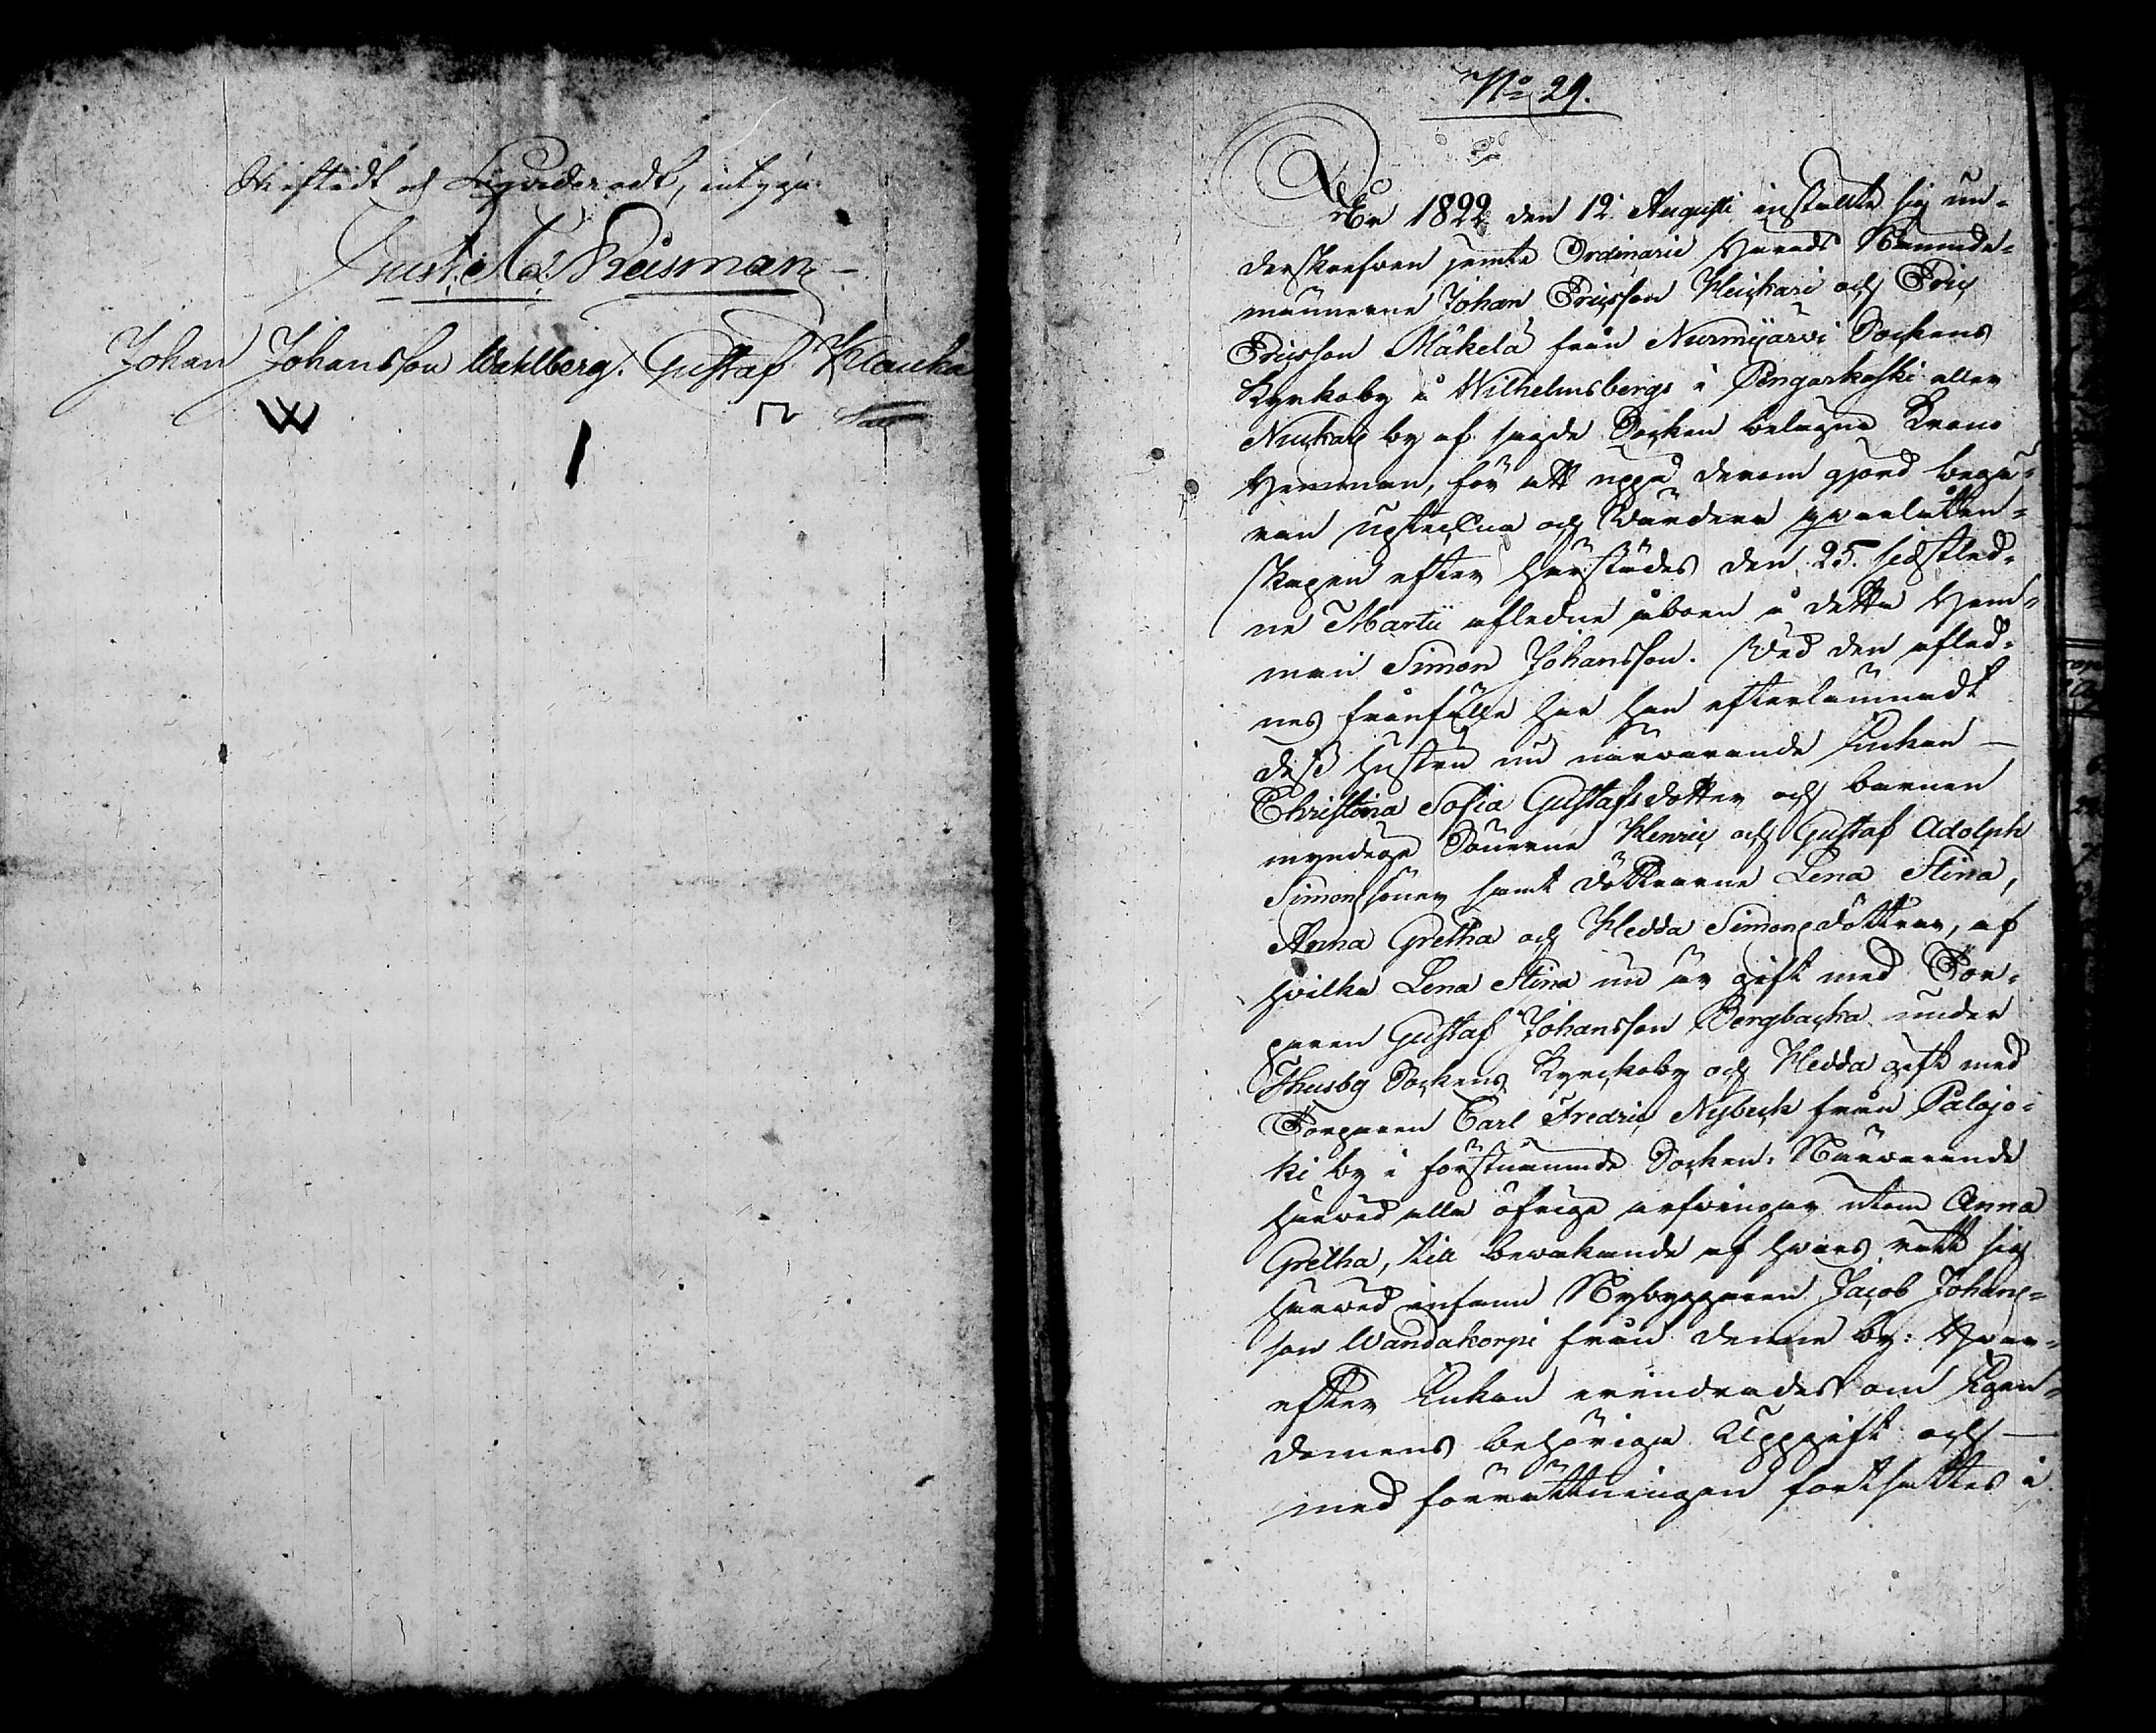 Skiftadt och Liqvideradt, intyga
Gust. Ad. Reisman
Johan Johansson Wahlberg. Gustaf Klauka
W
No 29.
År 1822 den 12 Augusti instälte sig un-
derskrefven jemte Ordinarie Härads Nämnde-
männerne Johan Ericsson Heickari och Eric
Ericsson Mäkelä från Nurmijärvi Sockens
Kyrkoby å Wilhelmsbergs i Pengarkoski eller
Nuckari by af sagde Socken belägne Krono
Hemman, för att uppå derom gjord begä-
ran upteckna och Värdera qvarlåten-
skapen efter härstädes den 25. sidstled-
ne Martii afledne åboen å detta Hem-
man Simon Johansson. Vid den afled-
nes frånfälle har han efterlämnadt
dess Hustru nu närvarande Enkan
Christina Sofia Gustafsdotter och barnen
myndige Sönerne Henric och Gustaf Adolph
Simonssöner samt döttrarne Lena Stina,
Anna Gretha och Hedda Simonsdöttrar, af
hvilka Lena Stina nu är gift med Tor-
paren Gustaf Johansson Bergbacka under
Thusby Sockens Kyrckoby och Hedda gift med
Torparen Carl Fredric Nybeck från Palojo-
ki by i förstnämnde Socken. Närvarande
härvid alla öfrige arfvingar utom Anna
Gretha, till bevakande af hvars rätt sig
härvid infann Nybyggaren Jacob Johans-
son Wandakorpi från denne by: Hvar-
efter Enkan erindrades om Egen-
domens behöriga Uppgift och
med förrättningen fortsattes i